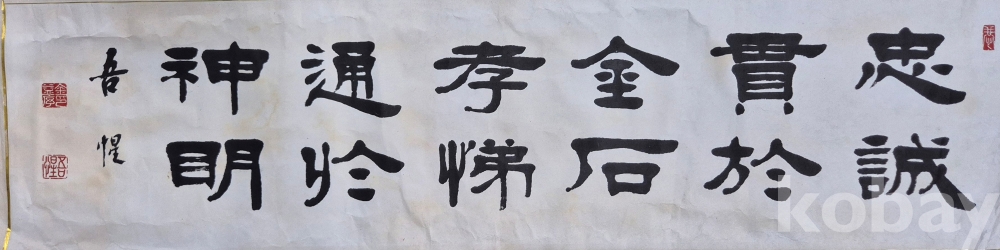 忠誠
貫於
金石
孝悌
通於
神明
吾惺
kobay